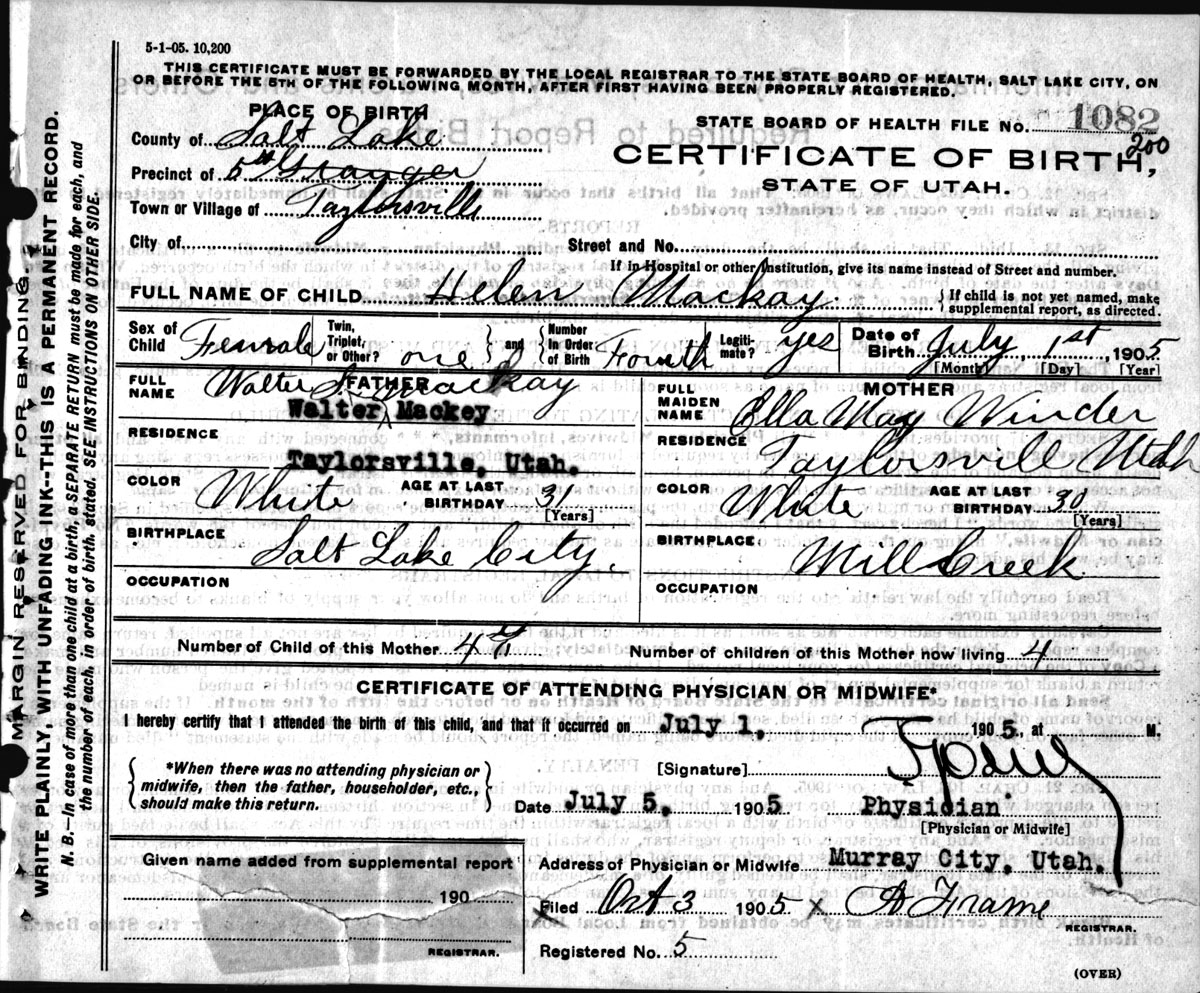 5-1-05. 10,200
THIS CERTIFICATE MUST BE FORWARDED BY THE LOCAL REGISTRAR TO THE STATE BOARD OF HEALTH, SALT LAKE CITY, ON
OR BEFORE THE 5TH OF THE FOLLOWING MONTH, AFTER FIRST HAVING BEEN PROPERLY REGISTERED.
PLACE OF BIRTH
County of Salt Lake
Precinct of Granger
Town or Village of Taylorsville
City of
STATE BOARD OF HEALTH FILE No. 1082
200
CERTIFICATE OF BIRTH,
STATE OF UTAH.
Street and No.
If in Hospital or other Institution, give its name instead of Street and number.
FULL NAME OF CHILD Helen Mackay
{ If child is not yet named, make
supplemental report, as directed.
Sex of Child Female
Twin, Triplet, or Other? one
and
Number In Order of Birth Fourth
Legitimate? yes
Date of Birth July 1st 1905
[Month] [Day] [Year]
FATHER
FULL NAME Walter Mackay
Walter Mackey
RESIDENCE
Taylorsville, Utah.
COLOR White
AGE AT LAST BIRTHDAY 31
[Years]
BIRTHPLACE Salt Lake City.
OCCUPATION
MOTHER
FULL MAIDEN NAME Ella May Winder
RESIDENCE Taylorsvill Utah
COLOR White
AGE AT LAST BIRTHDAY 30
[Years]
BIRTHPLACE Mill Creek
OCCUPATION
Number of Child of this Mother 4
Number of children of this Mother now living 4
CERTIFICATE OF ATTENDING PHYSICIAN OR MIDWIFE*
I hereby certify that I attended the birth of this child, and that it occurred on July 1, 1905, at M.
{ *When there was no attending physician or
midwife, then the father, householder, etc.,
should make this return. }
[Signature]
Date July 5, 1905
Physician
[Physician or Midwife]
Given name added from supplemental report
190
REGISTRAR.
Address of Physician or Midwife Murray City, Utah.
X Filed Oct 3 1905 X A Frame
REGISTRAR.
Registered No. 5
(OVER)
MARGIN RESERVED FOR BINDING.
WRITE PLAINLY, WITH UNFADING INK--THIS IS A PERMANENT RECORD.
N. B.—In case of more than one child at a birth, a SEPARATE RETURN must be made for each, and
the number of each, in order of birth, stated. SEE INSTRUCTIONS ON OTHER SIDE.